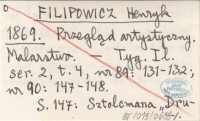 0 FILIPOWICZ Henryk
1869. Przegląd artystyczny.
Malarstwo. — Tyg. Il.
ser. 2, t. 4, nr 89: 131-132;
nr 90: 147-148.
S. 147: Sztolcmana „Dru-